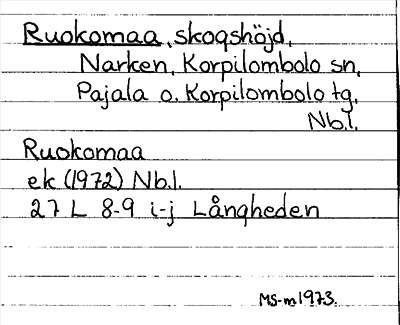 Ruokomaa, skogshöjd,
Narken, Korpilombolo sn,
Pajala o. Korpilombolo tg,
Nb.l.
Ruokomaa
ek (1972) Nb.l.
27 L 8-9 i-j Långheden
MS-m 1973.